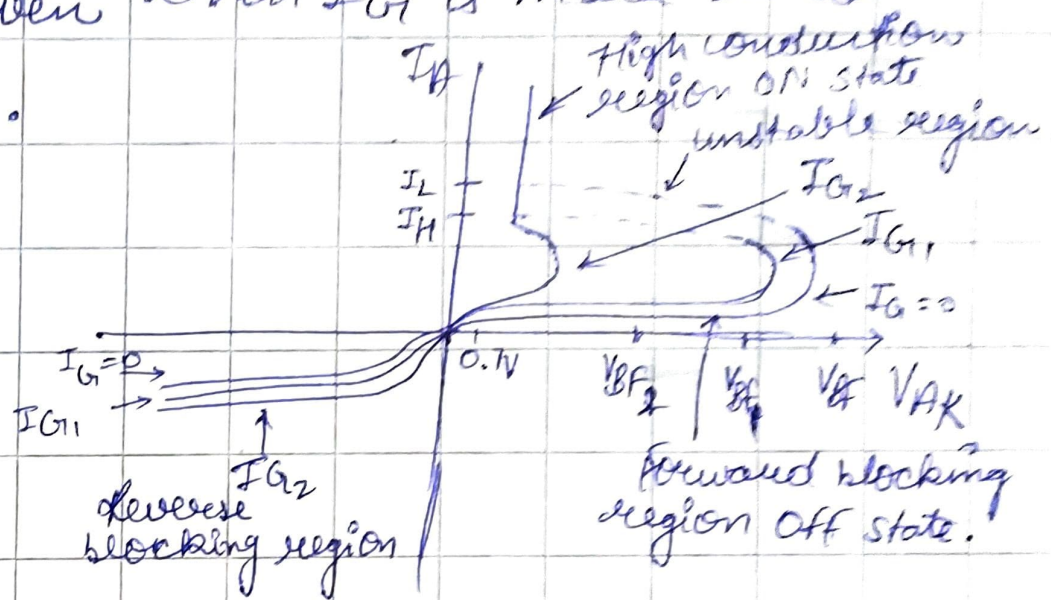 I_A
High conduction
region ON state
unstable region
I_L
I_H
I_G2
I_G1
I_G=0
I_G=0
I_G1
I_G2
0.7V
V_BF2
V_BF1
V_BF
V_AK
Reverse
blocking region
Forward blocking
region Off state.